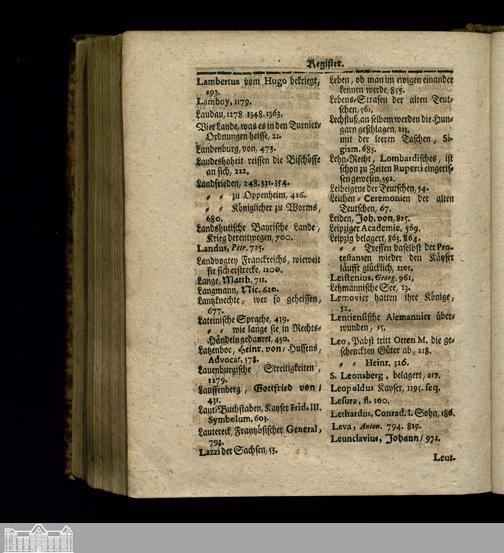 Register.
Lambertus vom Hugo bekriegt,
193.
Lamboy, 1179.
Landau, 1278. 1348. 1363.
Vier Lande, was es in den Turnier-
Ordnungen heisse, 21.
Landenburg, von, 473.
Landeshoheit reissen die Bischöffe
an sich, 222.
Landfrieden, 248. 331. 354.
zu Oppenheim, 416.
Königlicher zu Worms,
680.
Landshutische Bayrische Lande,
Krieg derentwegen, 700.
Landus, Petr. 725.
Landvogtey Franckreichs, wie weit
sie sich erstrecke, 1208.
Lange, Matth. 711.
Langmann, Nic. 620.
Lantzknechte, wer so geheissen,
677.
Lateinische Sprache, 439.
wie lange sie in Rechts-
Händeln gedauret, 450.
Latzenboc, Heinr. von / Hussens,
Advocat, 578.
Lauenburgische Streitigkeiten,
1279.
Lauffenberg, Gottfried von /
431.
Laut-Buchstaben, Kayser Frid. III.
Symbolum, 603.
Lautereck, Frantzösischer General,
793.
Lazzi der Sachsen, 53.
Leben, ob man im ewigen einander
kennen werde, 855.
Lebens-Strafen der alten Teut-
schen, 561.
Lechfluß, an selbem werden die Hun-
garn geschlagen, 213.
mit der leeren Taschen, Si-
gism. 685.
Lehn-Recht, Lombardisches, ist
schon zu Zeiten Ruperti eingeris-
sen gewesen, 592.
Leibeigene der Teutschen, 54.
Leichen-Ceremonien der alten
Teutschen, 67.
Leiden, Joh. von, 825.
Leipziger Academie, 569.
Leipzig belagert, 863. 864.
Treffen daselbst der Pro-
testanten wieder den Käyser
läufft glücklich, 1101.
Leistenius, Georg. 961.
Lehmannische See, 13.
Lemovier hatten ihre Könige,
52.
Lentiensische Alemannier über-
wunden, 15.
Leo, Pabst tritt Otten M. die ge-
schenckten Güter ab, 218.
Heinr. 326.
S. Leonsberg, belagert, 217.
Leopoldus Kayser, 1195. seq.
Lesura, fl. 100.
Lethardus, Conrad. I. Sohn, 186.
Leva, Anton. 794. 829.
Leunclavius, Johann / 972.
Leut.